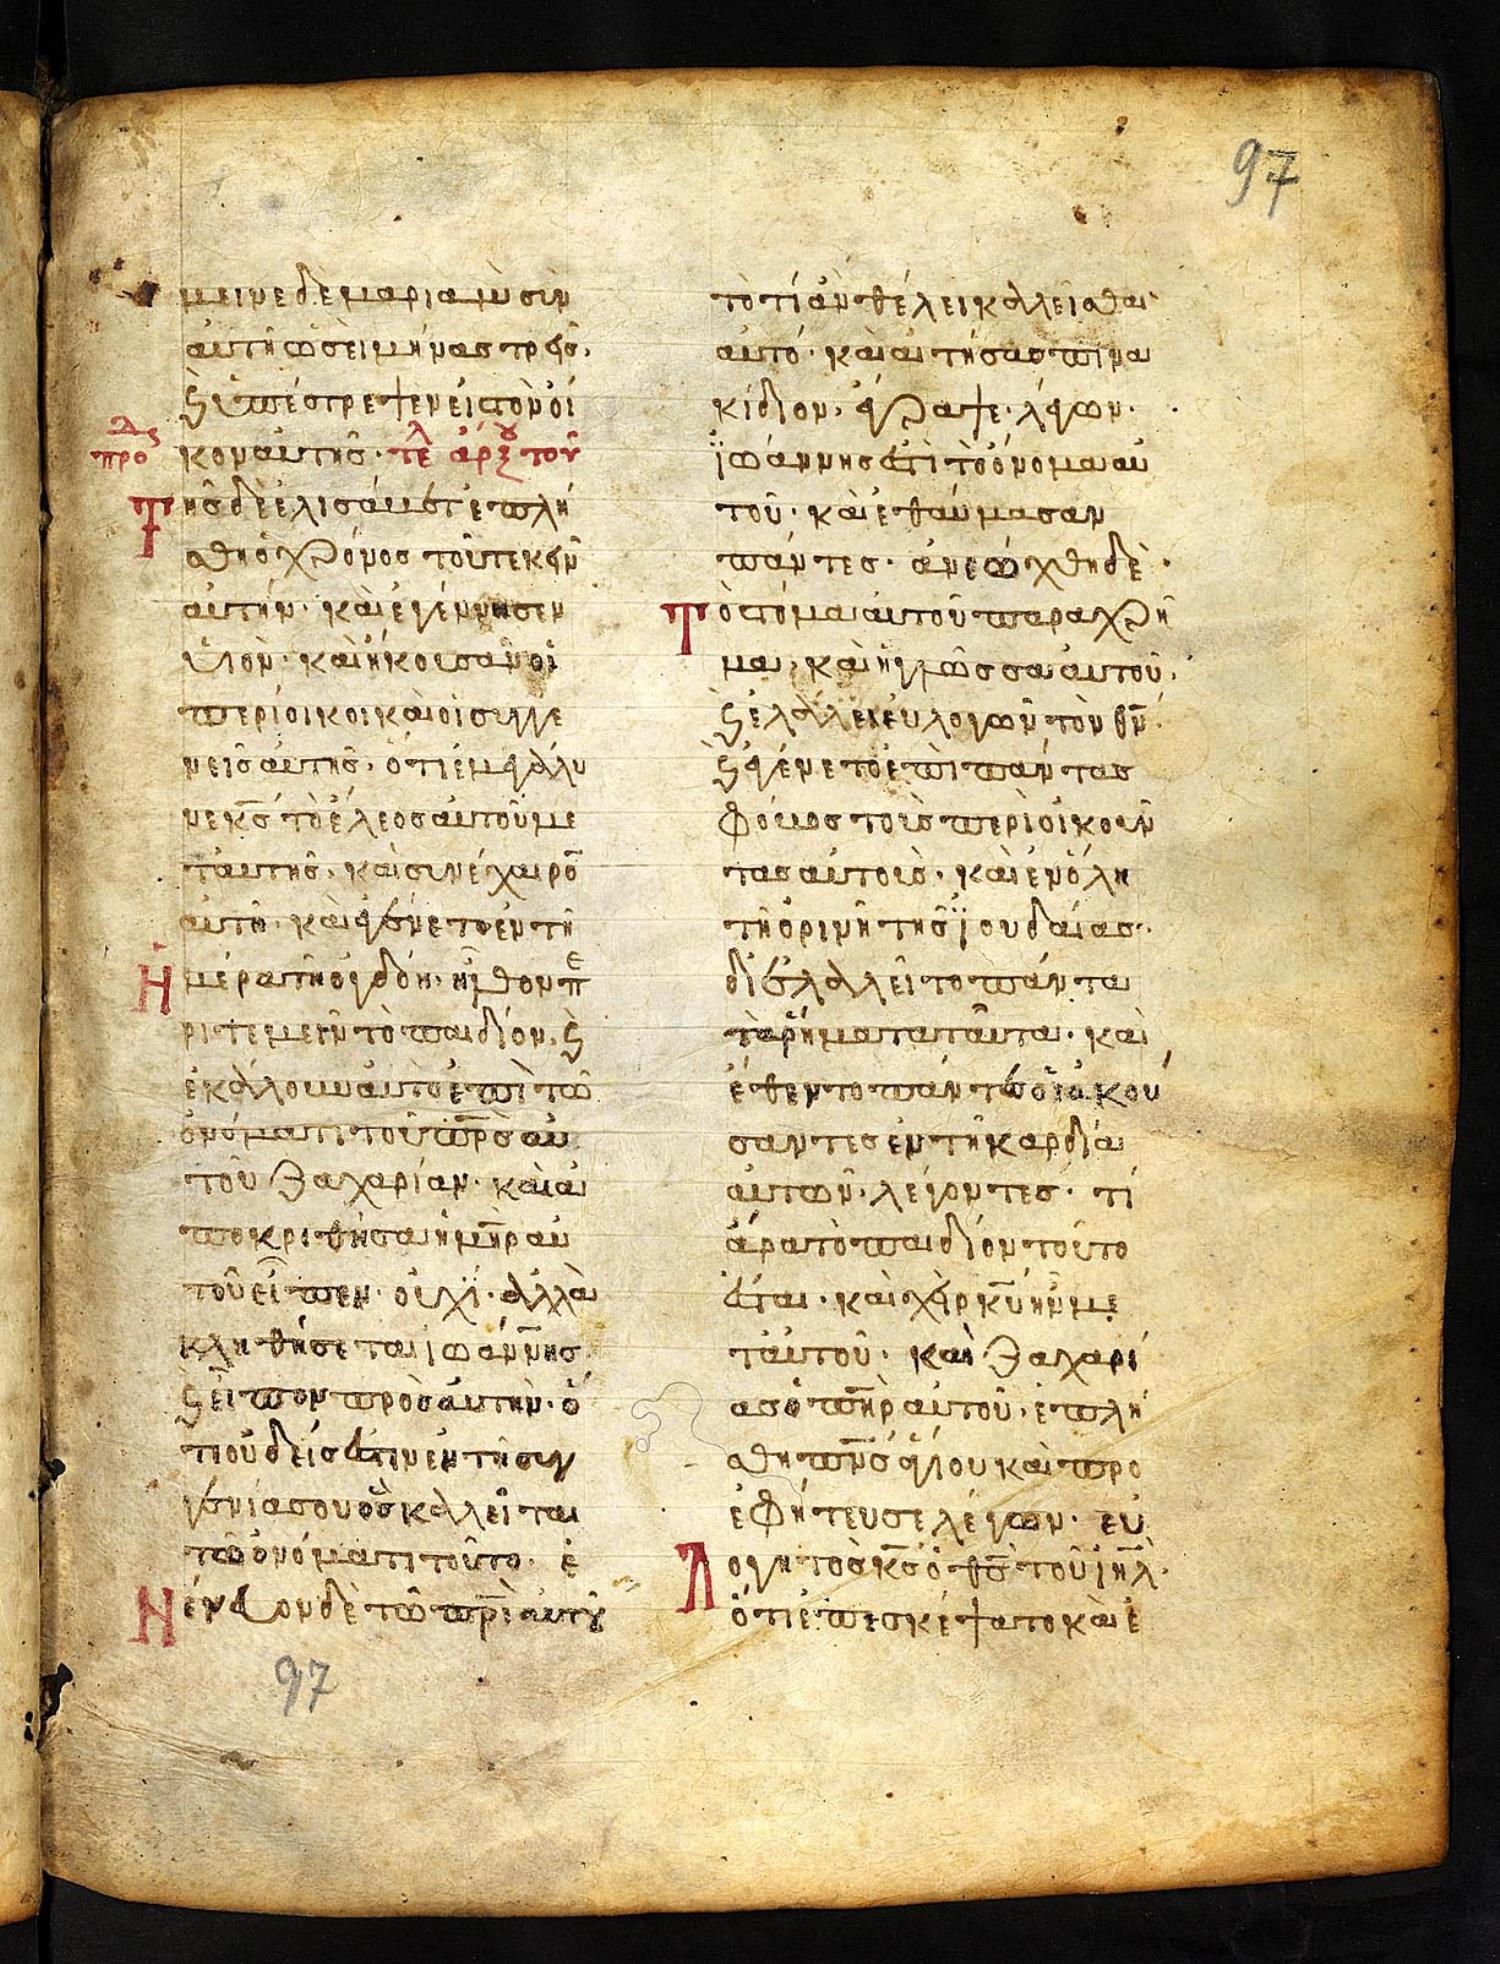 97
μεινε δὲ μαριὰμ σὺν
αὐτῆ ὡσεὶ μῆνας τρεῖς,
ϗ ὑπέστρεψεν εἰς τὸν οἶ
κον αὐτῆς· τελ ἀρχ του
προ
Τῆς δὲ ἐλισάβετ ἐπλή
σθη ὁ χρόνος τοῦ τεκεῖν
αὐτήν· καὶ ἐγέννησεν
υἱὸν· καὶ ἤκουσαν οἱ
περίοικοι καὶ οἱ συγγε
νεῖς αὐτῆς, ὅτι ἐμεγάλυ
νε κ̅ς̅ τὸ ἔλεος αὐτοῦ με
τ αὐτῆς· καὶ συνέχαιρο̅
αὐτῆ· καὶ ἐγένετο ἐν τῆ
Ημέρα τῆ ὀγδόη· ἦλθον πε
ριτεμεῖν τὸ παιδίον, ϗ
ἐκάλουν αὐτὸ ἐπὶ τῶ
ὀνόματι τοῦ π̅ρ̅ς̅ αὐ
τοῦ Ζαχαρίαν· καὶ ἀ
ποκριθῆσα ἡ μ̅η̅ρ αὐ
τοῦ εἶπεν· οὐχΐ· ἀλλὰ
κληθήσεται ϊωάννης·
ϗ εἶπον πρὸς αὐτὴν· ὅ
τι οὐδείς ἐστιν ἐν τῆ συγ
γενία σου ὃς καλεῖται
τῶ ὀνόματι τοῦτο· ἐ
Νένευον δὲ τῶ π̅ρ̅ὶ αὐτοῦ
97
τὸ τί ἂν θέλει καλλεῖσθαι
αὐτό· καὶ αἰτήσας πινα
κίδιον, ἔγραψε· λέγων·
ϊωάννης ἐστὶ τὸ ὄνομα αὐ
τοῦ· καὶ ἐθαύμασαν
πάντες· ἀνεώχθη δὲ·
Τὸ στόμα αὐτοῦ παραχρῆ
μα, καὶ ἡ γλῶσσα αὐτοῦ,
ϗ ἐλάλει εὐλογῶν τὸν θ̅ν̅·
ϗ ἐγένετο ἐπὶ πάντας
φόβος τοὺς περιοικοῦν
τας αὐτοὺς· καὶ ἐν ὅλη
τῆ ὁρινῆ τῆς ϊουδαίας·
διελαλλεῖτο πάντα
τὰ ῥήματα ταῦτα· καὶ
ἔθεντο πάντες οἱ ἀκού
σαντες ἐν τῆ καρδία
αὐτῶν· λέγοντες· τί
ἄρα τὸ παιδίον τοῦτο
ἔσται· καὶ χεὶρ κ̅υ̅ ἦν με
τ αὐτοῦ· καὶ Ζαχαρί
ας ὁ π̅η̅ρ αὐτοῦ, ἐπλή
σθη π̅ν̅ς̅ ἁγίου καὶ προ
εφήτευσε λέγων· εὐ
Λογητὸς κ̅ς̅ ὁ θ̅ς̅ τοῦ ἰ̅η̅λ̅·
ὅτι ἐπεσκέψατο καὶ ἐ